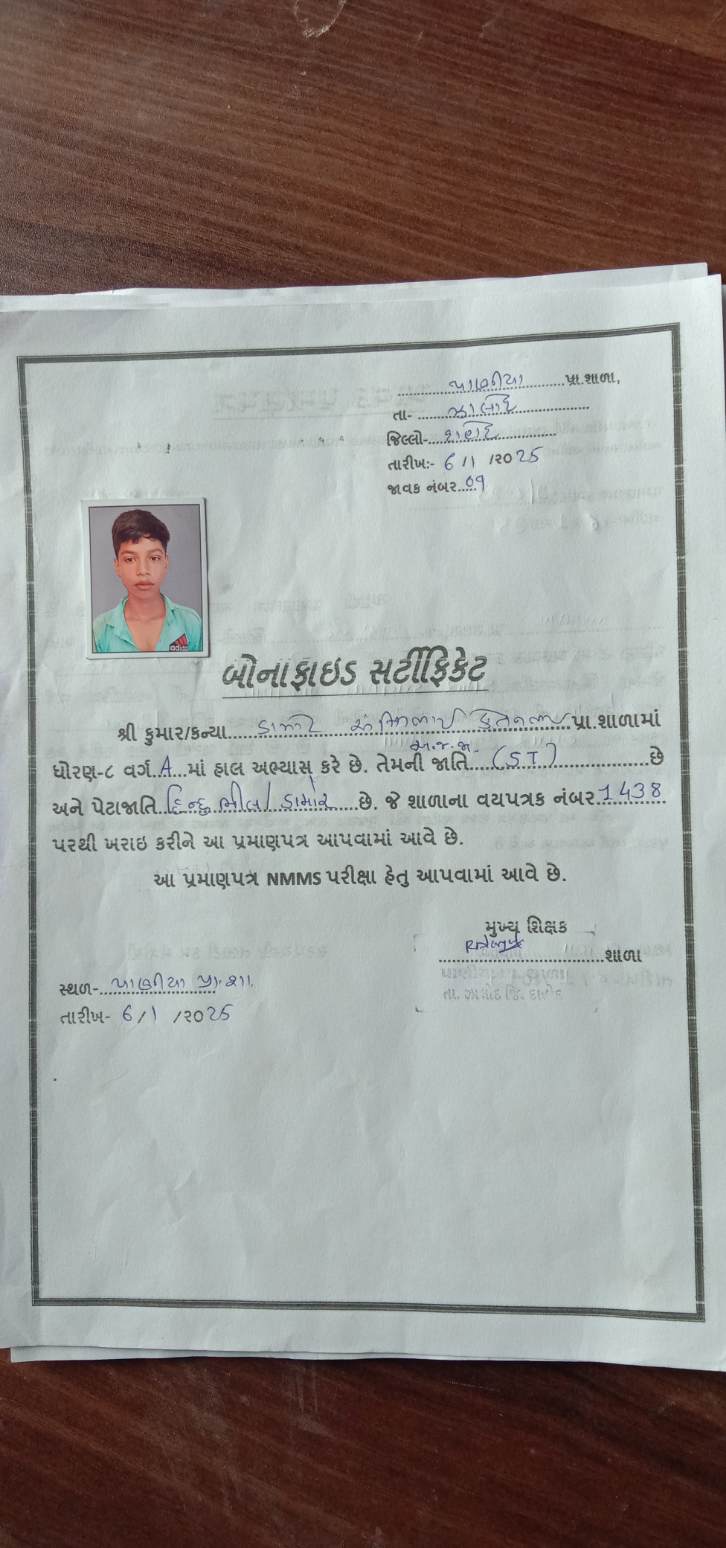 પાણીયા પ્રા.શાળા,
તા- ઝાલોદ
જિલ્લો- દાહોદ
તારીખ:- 6/1/2025
જાવક નંબર. 09
adidas
બોનાફાઇડ સર્ટીફિકેટ
શ્રી કુમાર/કન્યા ડામોર પ્રા.શાળામાં
અ.જ.જા.
ધોરણ-૮ વર્ગ. A માં હાલ અભ્યાસ કરે છે. તેમની જાતિ (ST) છે
અને પેટાજાતિ હિન્દુ ભીલ/ડામોર છે. જે શાળાના વયપત્રક નંબર 1438
પરથી ખરાઇ કરીને આ પ્રમાણપત્ર આપવામાં આવે છે.
આ પ્રમાણપત્ર NMMS પરીક્ષા હેતુ આપવામાં આવે છે.
મુખ્ય શિક્ષક
શાળા
સ્થળ- પાણીયા પ્રા.શા.
તારીખ- 6/1/2025